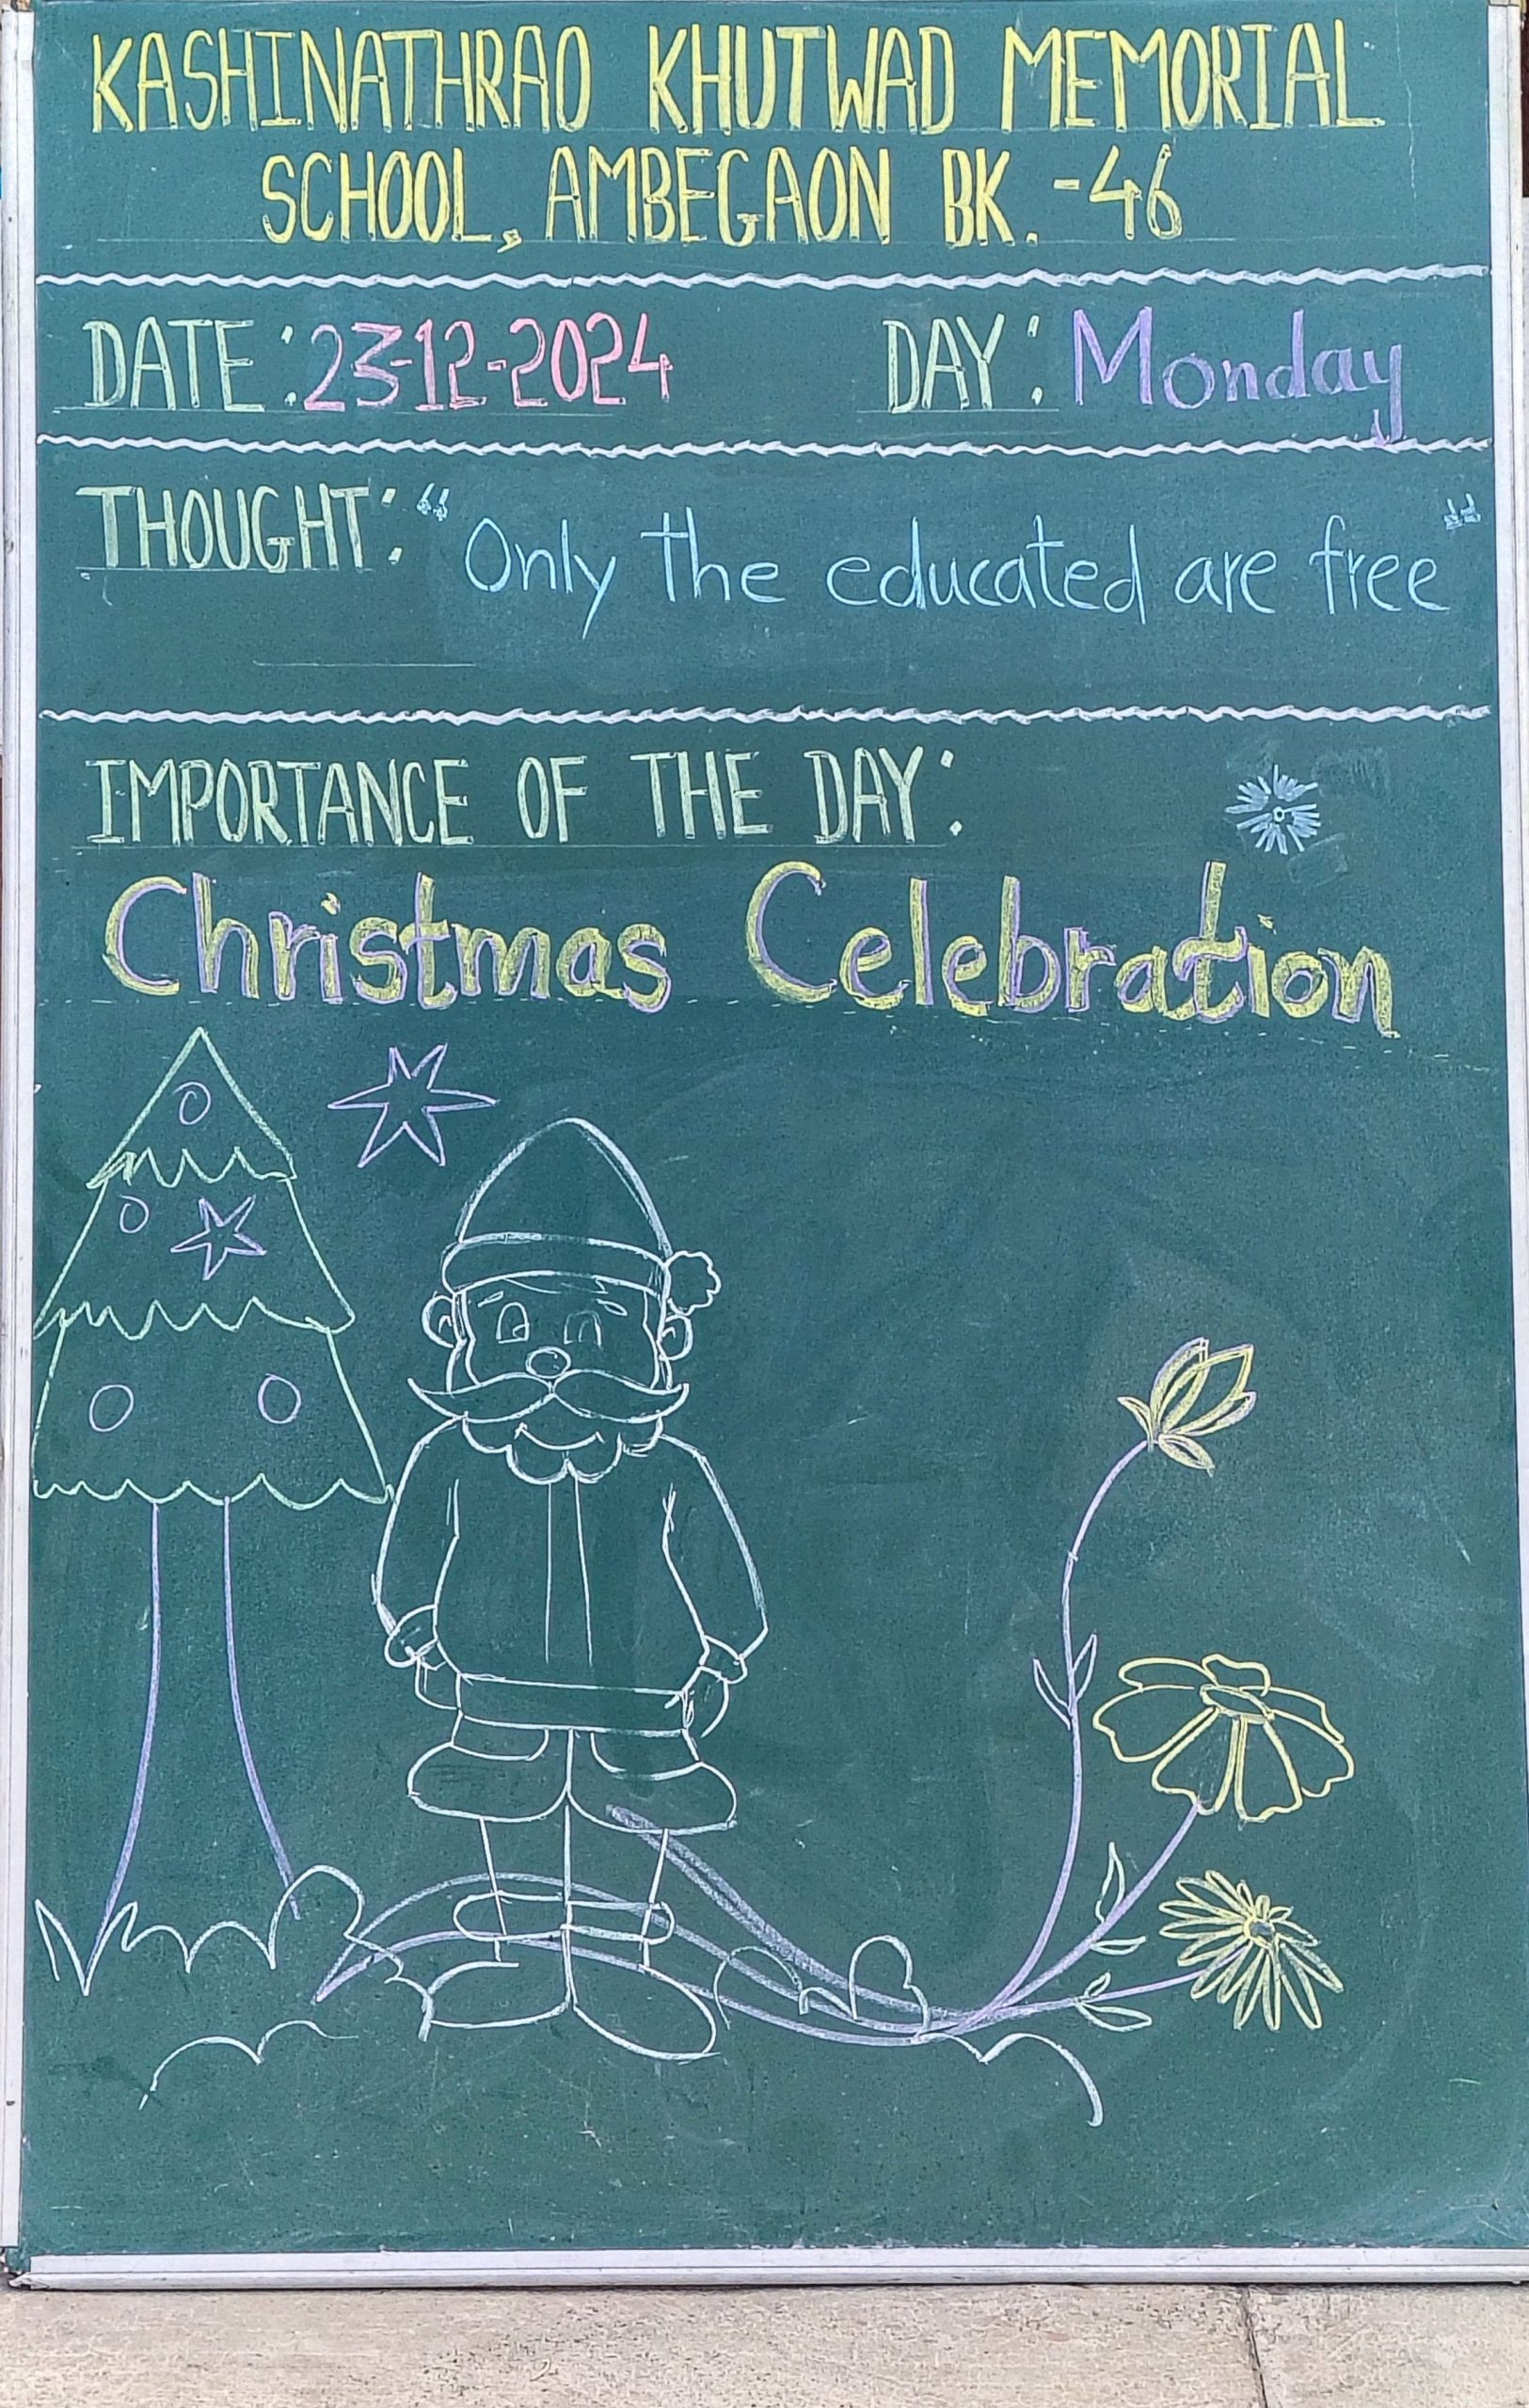 KASHINATHRAO KHUTWAD MEMORIAL
SCHOOL, AMBEGAON BK. -46
DATE: 23-12-2024 DAY: Monday
THOUGHT: "Only the educated are free"
IMPORTANCE OF THE DAY:
Christmas Celebration